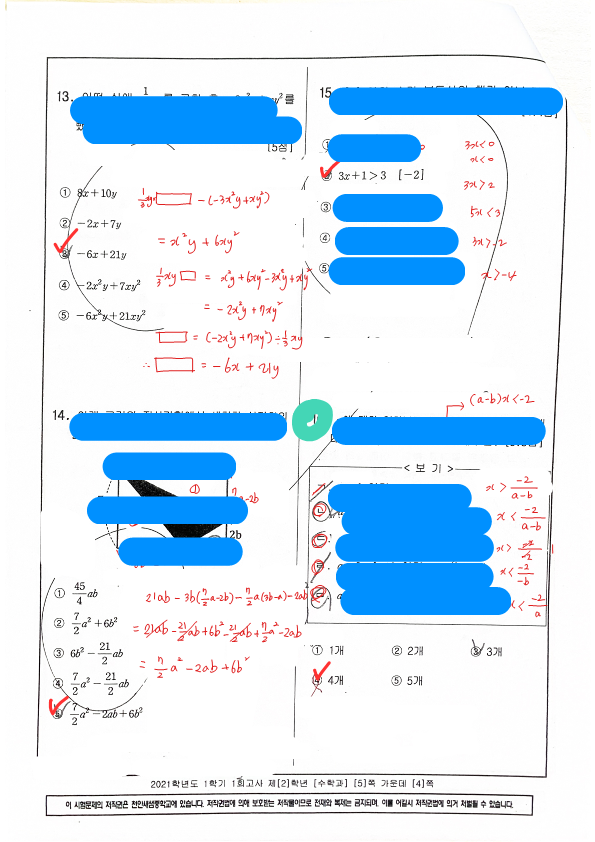 13.
[5점]
① 8x+10y
② -2x+7y
③ -6x+21y
④ -2x²y+7xy²
⑤ -6x²y+21xy²
-(-3x²y+xy²)
= x²y+6xy²
1/3xy □ = x²y+6xy²-3x²y+xy²
= -2x²y+7xy²
□ = (-2x²y+7xy²)÷1/3xy
∴ □ = -6x+21y
14.
2b
① 45/4 ab
② 7/2 a²+6b²
③ 6b²-21/2 ab
④ 7/2 a²-21/2 ab
⑤ 7/2 a²-2ab+6b²
21ab-3b(7/2a-2b)-7/2a(3b-a)-2ab
= 21ab-21/2ab+6b²-21/2ab+7/2a²-2ab
= 7/2a²-2ab+6b²
15
② 3x+1>3 [-2]
③
④
⑤
3x<0
x<0
3x>2
5x<3
3x>-2
x>-4
(a-b)x<-2
<보 기>
x>-2/a-b
x<-2/a-b
x<-2/-b
<-2/a
① 1개 ② 2개 ③ 3개
④ 4개 ⑤ 5개
2021학년도 1학기 1회고사 제[2]학년 [수학과] [5]쪽 가운데 [4]쪽
이 시험문제의 저작권은 천안새샘중학교에 있습니다. 저작권법에 의해 보호받는 저작물이므로 전재와 복제는 금지되며, 이를 어길시 저작권법에 의거 처벌될 수 있습니다.